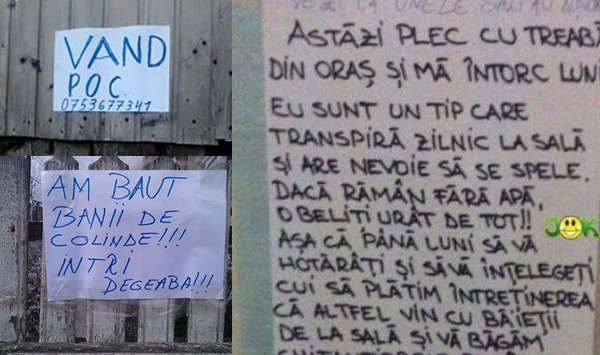 VAND
POC.
0753677341
AM BAUT
BANII DE
COLINDE!!!
INTRI
DEGEABA!!!
ASTĂZI PLEC CU TREABĂ
DIN ORAȘ ȘI MĂ ÎNTORC LUNI
EU SUNT UN TIP CARE
TRANSPIRĂ ZILNIC LA SALĂ
ȘI ARE NEVOIE SĂ SE SPELE.
DACĂ RĂMÂN FĂRĂ APĂ,
O BELITI URÂT DE TOT!!
JOK
AȘA CĂ PÂNĂ LUNI SĂ VĂ
HOTĂRÂȚI ȘI SĂ VĂ ÎNȚELEGEȚI
CUI SĂ PLĂTIM ÎNTREȚINEREA
CĂ ALTFEL VIN CU BĂIEȚII
DE LA SALĂ ȘI VĂ BĂGĂM